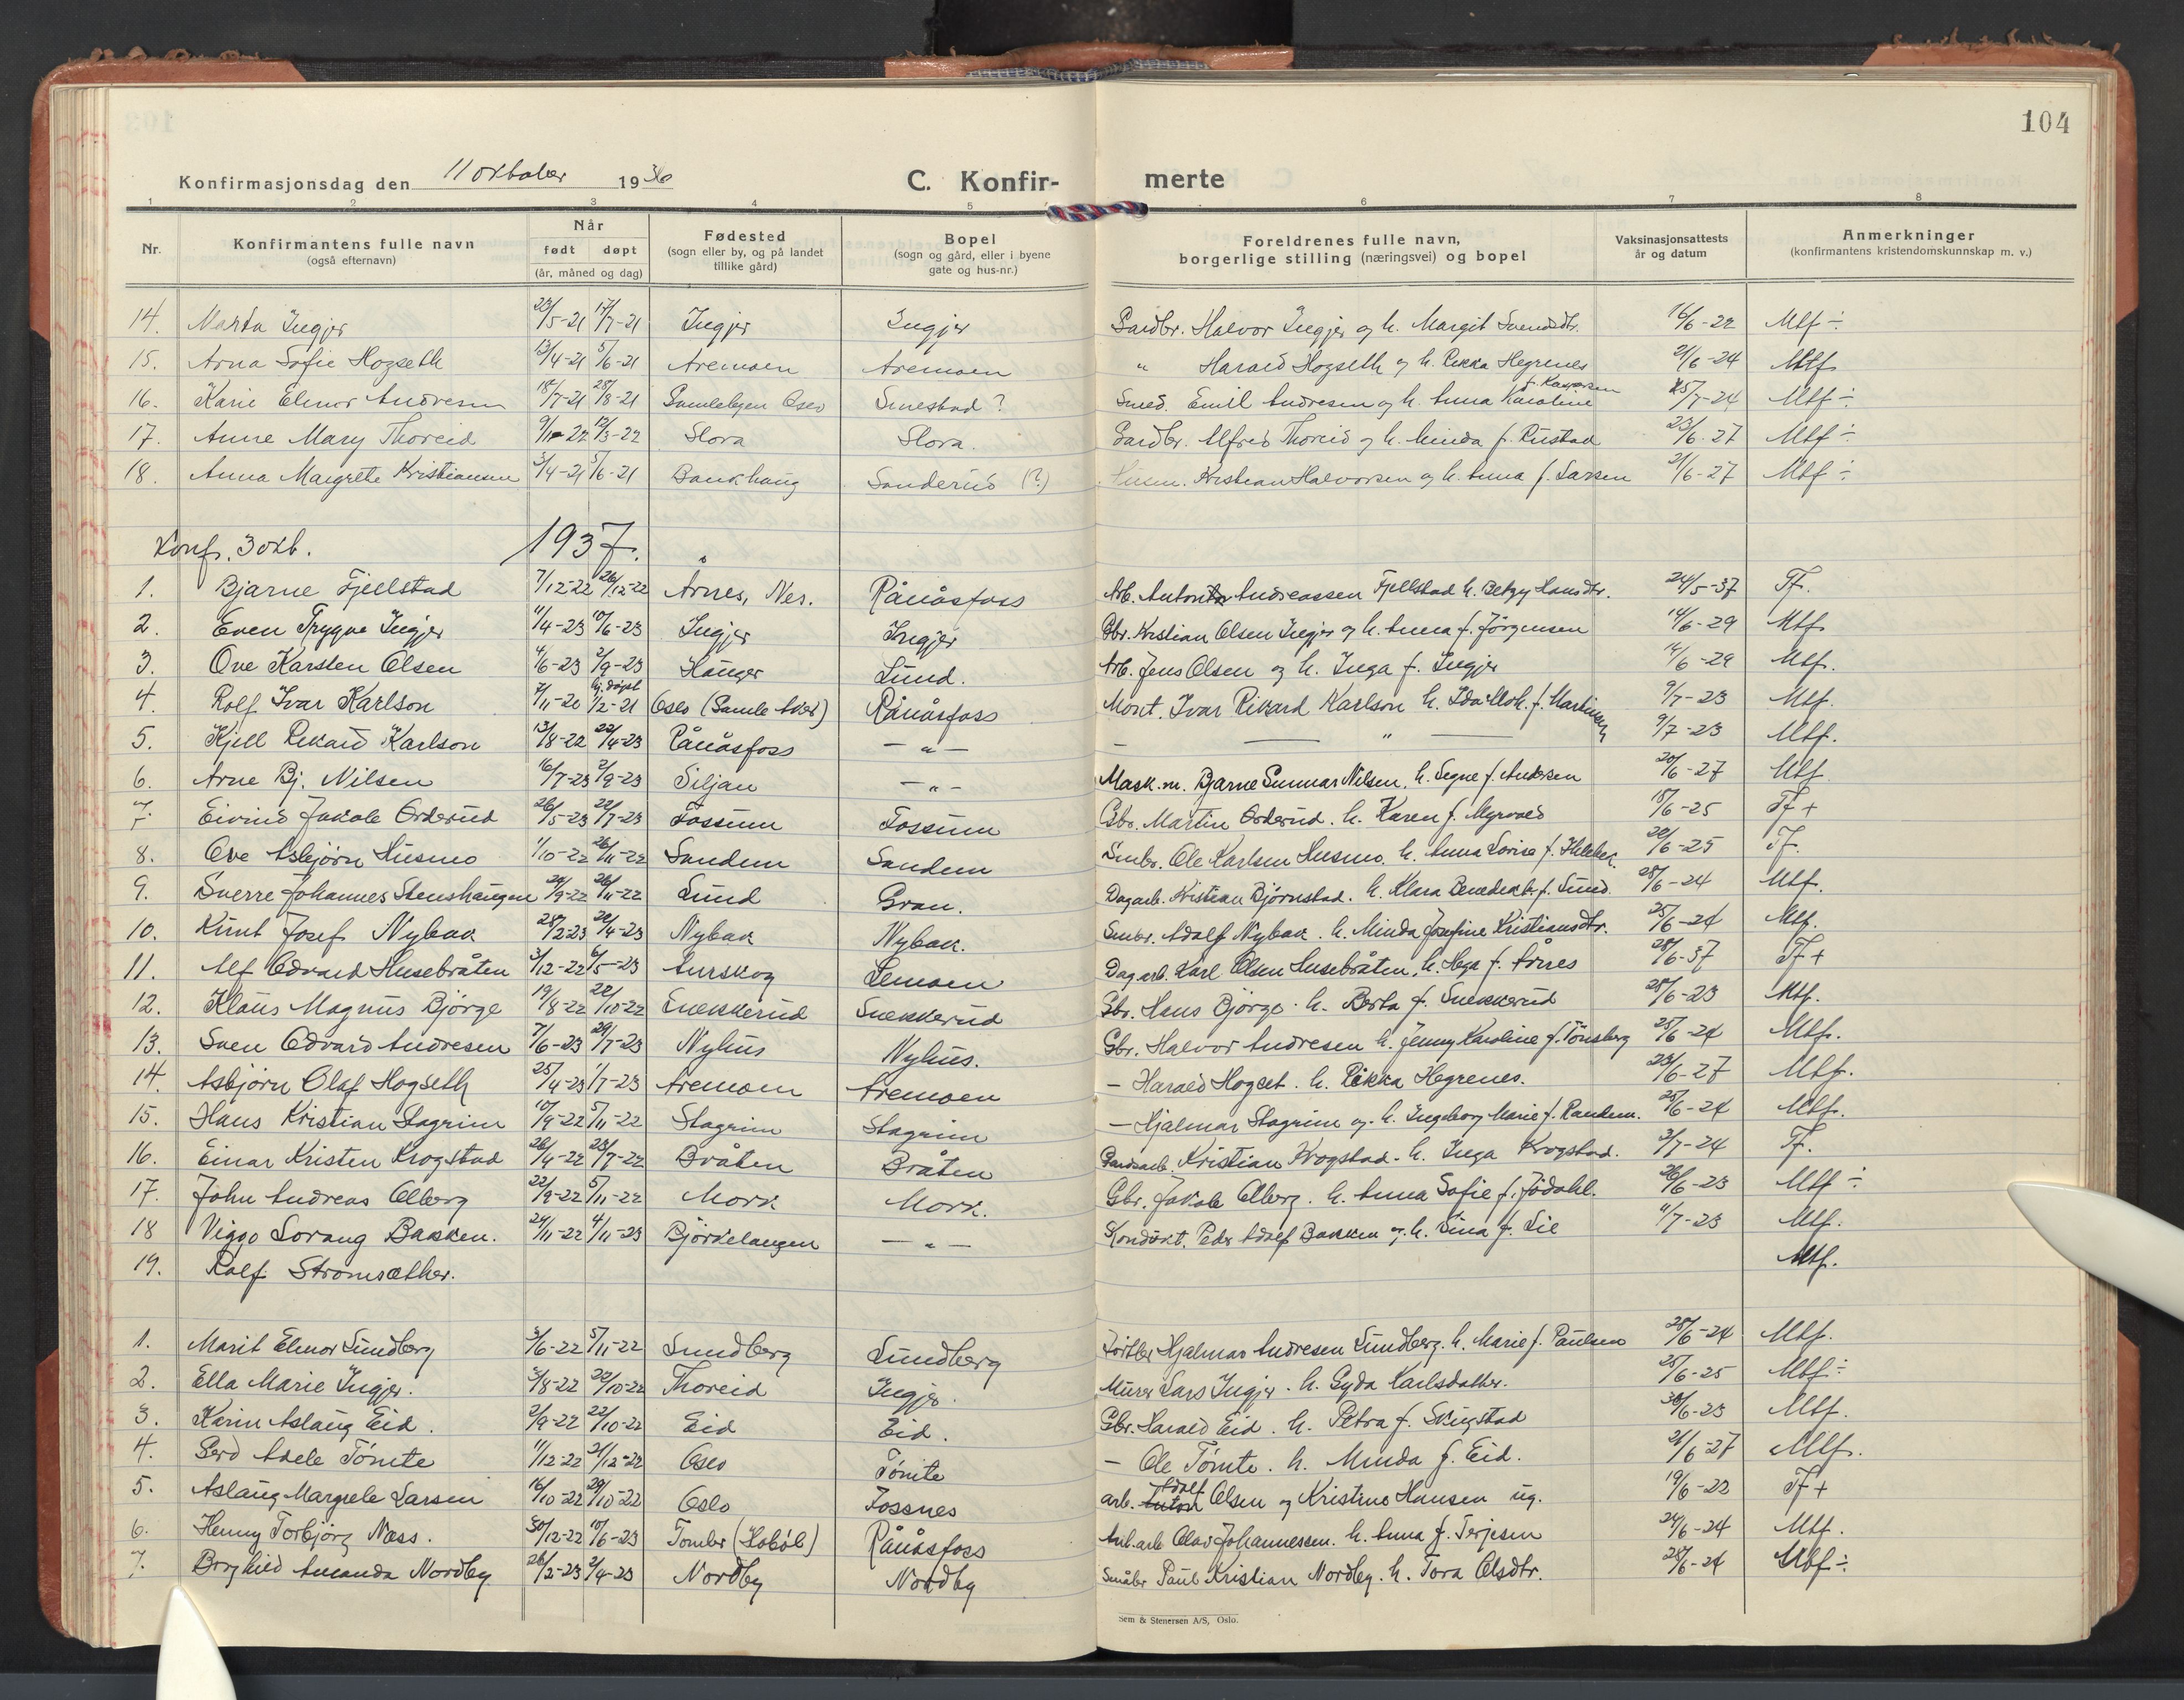 104
Konfirmasjonsdag den 11 oktober 1936 C. Konfir- merte
1 2 3 4 5 6 7 8
Nr. Konfirmantens fulle navn (også efternavn) Når født døpt (år, måned og dag) Fødested (sogn eller by, og på landet tillike gård) Bopel (sogn og gård, eller i byene gate og hus-nr.) Foreldrenes fulle navn, borgerlige stilling (næringsvei) og bopel Vaksinasjonsattests år og datum Anmerkninger (konfirmantens kristendomskunnskap m. v.)
14. Marta Ingjer 23/5-21 17/7-21 Ingjer Ingjer Gardbr. Halvor Ingjer og h. Margit Svendsdtr. 16/6-22 Mtf ÷
15. Arna Sofie Hogseth 13/4-21 5/6-21 Aremoen Aremoen " Harald Hogseth og h. Rikka Hegrenes 21/6-24 Mtf
16. Karin Elinor Andresen 18/7-21 28/8-21 Gamlebyen Oslo Smestad? Smed. Emil Andresen og h. Anna Karoline f. Kaspersen 25/7-24 Mtf ÷
17. Anne Mary Thoreid 12/3-22 Slora Slora. Gardbr. Alfred Thoreid og h. Minda f. Rustad 23/6-27 Mtf ÷
18. Anna Margrethe Kristiansen 3/4-21 5/6-21 Bankhaug Sanderud (?) Kristian Halvorsen og h. Anna f. Larsen 21/6-27 Mtf ÷
Konf. 3 okt. 1937.
1. Bjarne Fjellstad 7/12-22 26/12-22 Årnes, Nes. Rånåsfoss Arb. Anton Andreassen Fjellstad h. Betzy Hansdtr. 24/5-37 Tf.
2. Even Trygve Ingjer 11/4-23 10/6-23 Ingjer Ingjer Gbr. Kristian Olsen Ingjer og h. Anna f. Jörgensen 14/6-29 Mtf
3. Ove Karsten Olsen 4/6-23 2/9-23 Hanger Lund. Arb. Jens Olsen og h. Inga f. Ingjer 14/6-29 Mtf.
4. Rolf Ivar Karlson 7/11-20 hj. döpt 1/2-21 Oslo (Gamle Aker) Rånåsfoss Mont. Ivar Rikard Karlson h. Ida Math. f. Martinsen 9/7-23 Mtf.
5. Kjell Rikard Karlson 13/8-22 22/4-23 Rånåsfoss — " — — " — 9/7-23 Mtf.
6. Arne Bj. Nilsen 16/7-23 2/9-23 Siljan — " — Mask.m. Bjarne Gunnar Nilsen, h. Signe f. Andersen 20/6-27 Mtf
7. Eivind Jakob Orderud 26/5-23 22/7-23 Fossum Fossum Gbr. Martin Orderud. h. Karen f. Myrvold 18/6-25 Tf +
8. Ove Asbjørn Husmo 1/10-22 26/11-22 Sandem Sandem Smbr. Ole Karlsen Husmo. h. Anna Lovise f. 20/6-25 Tf.
9. Sverre Johannes Stenshaugen 24/9-22 26/11-22 Lund Gran. Dagarb. Kristian Bjørnstad. h. Klara Benedicte f. Lund. 28/6-24 Mtf.
10. Knut Josef Nybak 28/2-23 22/4-23 Nybak Nybak. Smbr. Adolf Nybak. h. Minda Josefine Kristiansdtr. 25/6-24 Mtf.
11. Alf Edvard Husebråten 3/12-22 6/5-23 Aurskog Lemoen Dagarb. Karl Olsen Husebråten. h. Hega f. Årnes 28/6-37 Tf +
12. Klaus Magnus Bjørge 19/8-22 22/10-22 Snekkerud Snekkerud Gbr. Hans Bjørge. h. Berta f. Snekkerud 28/6-23 Mtf.
13. Sven Edvard Andresen 7/6-23 29/7-23 Nyhus Nyhus. Gbr. Halvor Andresen h. Jenny Karoline f. Tönsberg 25/6-24 Mtf.
14. Asbjørn Olaf Hogseth 25/4-23 1/7-23 Aremoen Aremoen — Harald Hogset. h. Rikka Hegrenes. 23/6-27 Mtf.
15. Hans Kristian Stagrim 10/9-22 5/11-22 Stagrim Stagrim — Hjalmar Stagrim og h. Ingeborg Marie f. Randem. 25/6-24 Mtf.
16. Einar Kristen Krogstad 26/4-22 23/7-22 Bråten Bråten Gardsarb. Kristian Krogstad. h. Inga Krogstad. 3/7-24 Tf.
17. John Andreas Olberg 22/9-22 5/11-22 Mork Mork. Gbr. Jakob Olberg. h. Anna Sofie f. Jödahl. 26/6-23 Mtf ÷
18 Viggo Lorang Bakken. 24/11-22 4/11-23 Björkelangen — " — Kondukt. Peder Adolf Bakken og h. Lina f. Lie 11/7-23 Mtf.
19. Rolf Strømsæther. Mtf.
1. Marit Elinor Lundberg 3/6-22 5/11-22 Lundberg Lundberg Hjalmar Andresen Lundberg. h. Marie f. Paulsen 28/6-24 Mtf.
2. Ella Marie Ingjer. 3/8-22 22/10-22 Thoreid Ingjer. Murer Lars Ingjer. h. Gyda Karlsdatter. 25/6-25 Mtf ÷
3. Karin Aslaug Eid. 2/9-22 22/10-22 Eid Eid. Gbr. Harald Eid. h. Petra f. Skugstad 30/6-23 Mtf.
4. Gerd Adele Tömte 1/12-22 21/12-22 Oslo Tömte — Ole Tömte. h. Minda f. Eid. 21/6-27 Mtf.
5. Aslaug Margrete Larsen 16/10-22 29/10-22 Oslo Fossnes arb. Anton Adolf Olsen og Kristine Hansen ug. 19/6-23 Tf +
6. Henny Torbjörg Næss. 30/12-22 10/6-23 Tomter (Hobøl) Rånåsfoss Anl.arb. Olav Johannessen. h. Anna f. Terjesen 24/6-24 Mtf.
7. Borghild Amanda Nordby 26/2-23 2/4-23 Nordby Nordby Småbr Paul Kristian Nordby. h. Tora Olsdtr. 28/6-24 Mtf ÷
Sem & Stenersen A/S, Oslo.